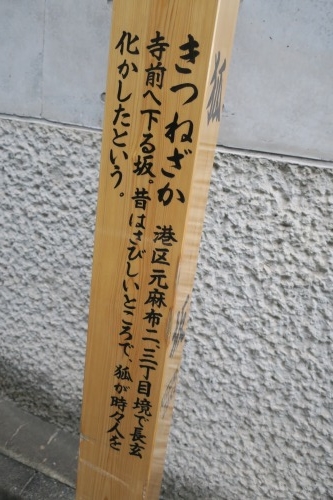 きつねざか 港区元麻布二、三丁目境で長玄
寺前へ下る坂。昔はさびしいところで、狐が時々人を
化かしたという。
狐